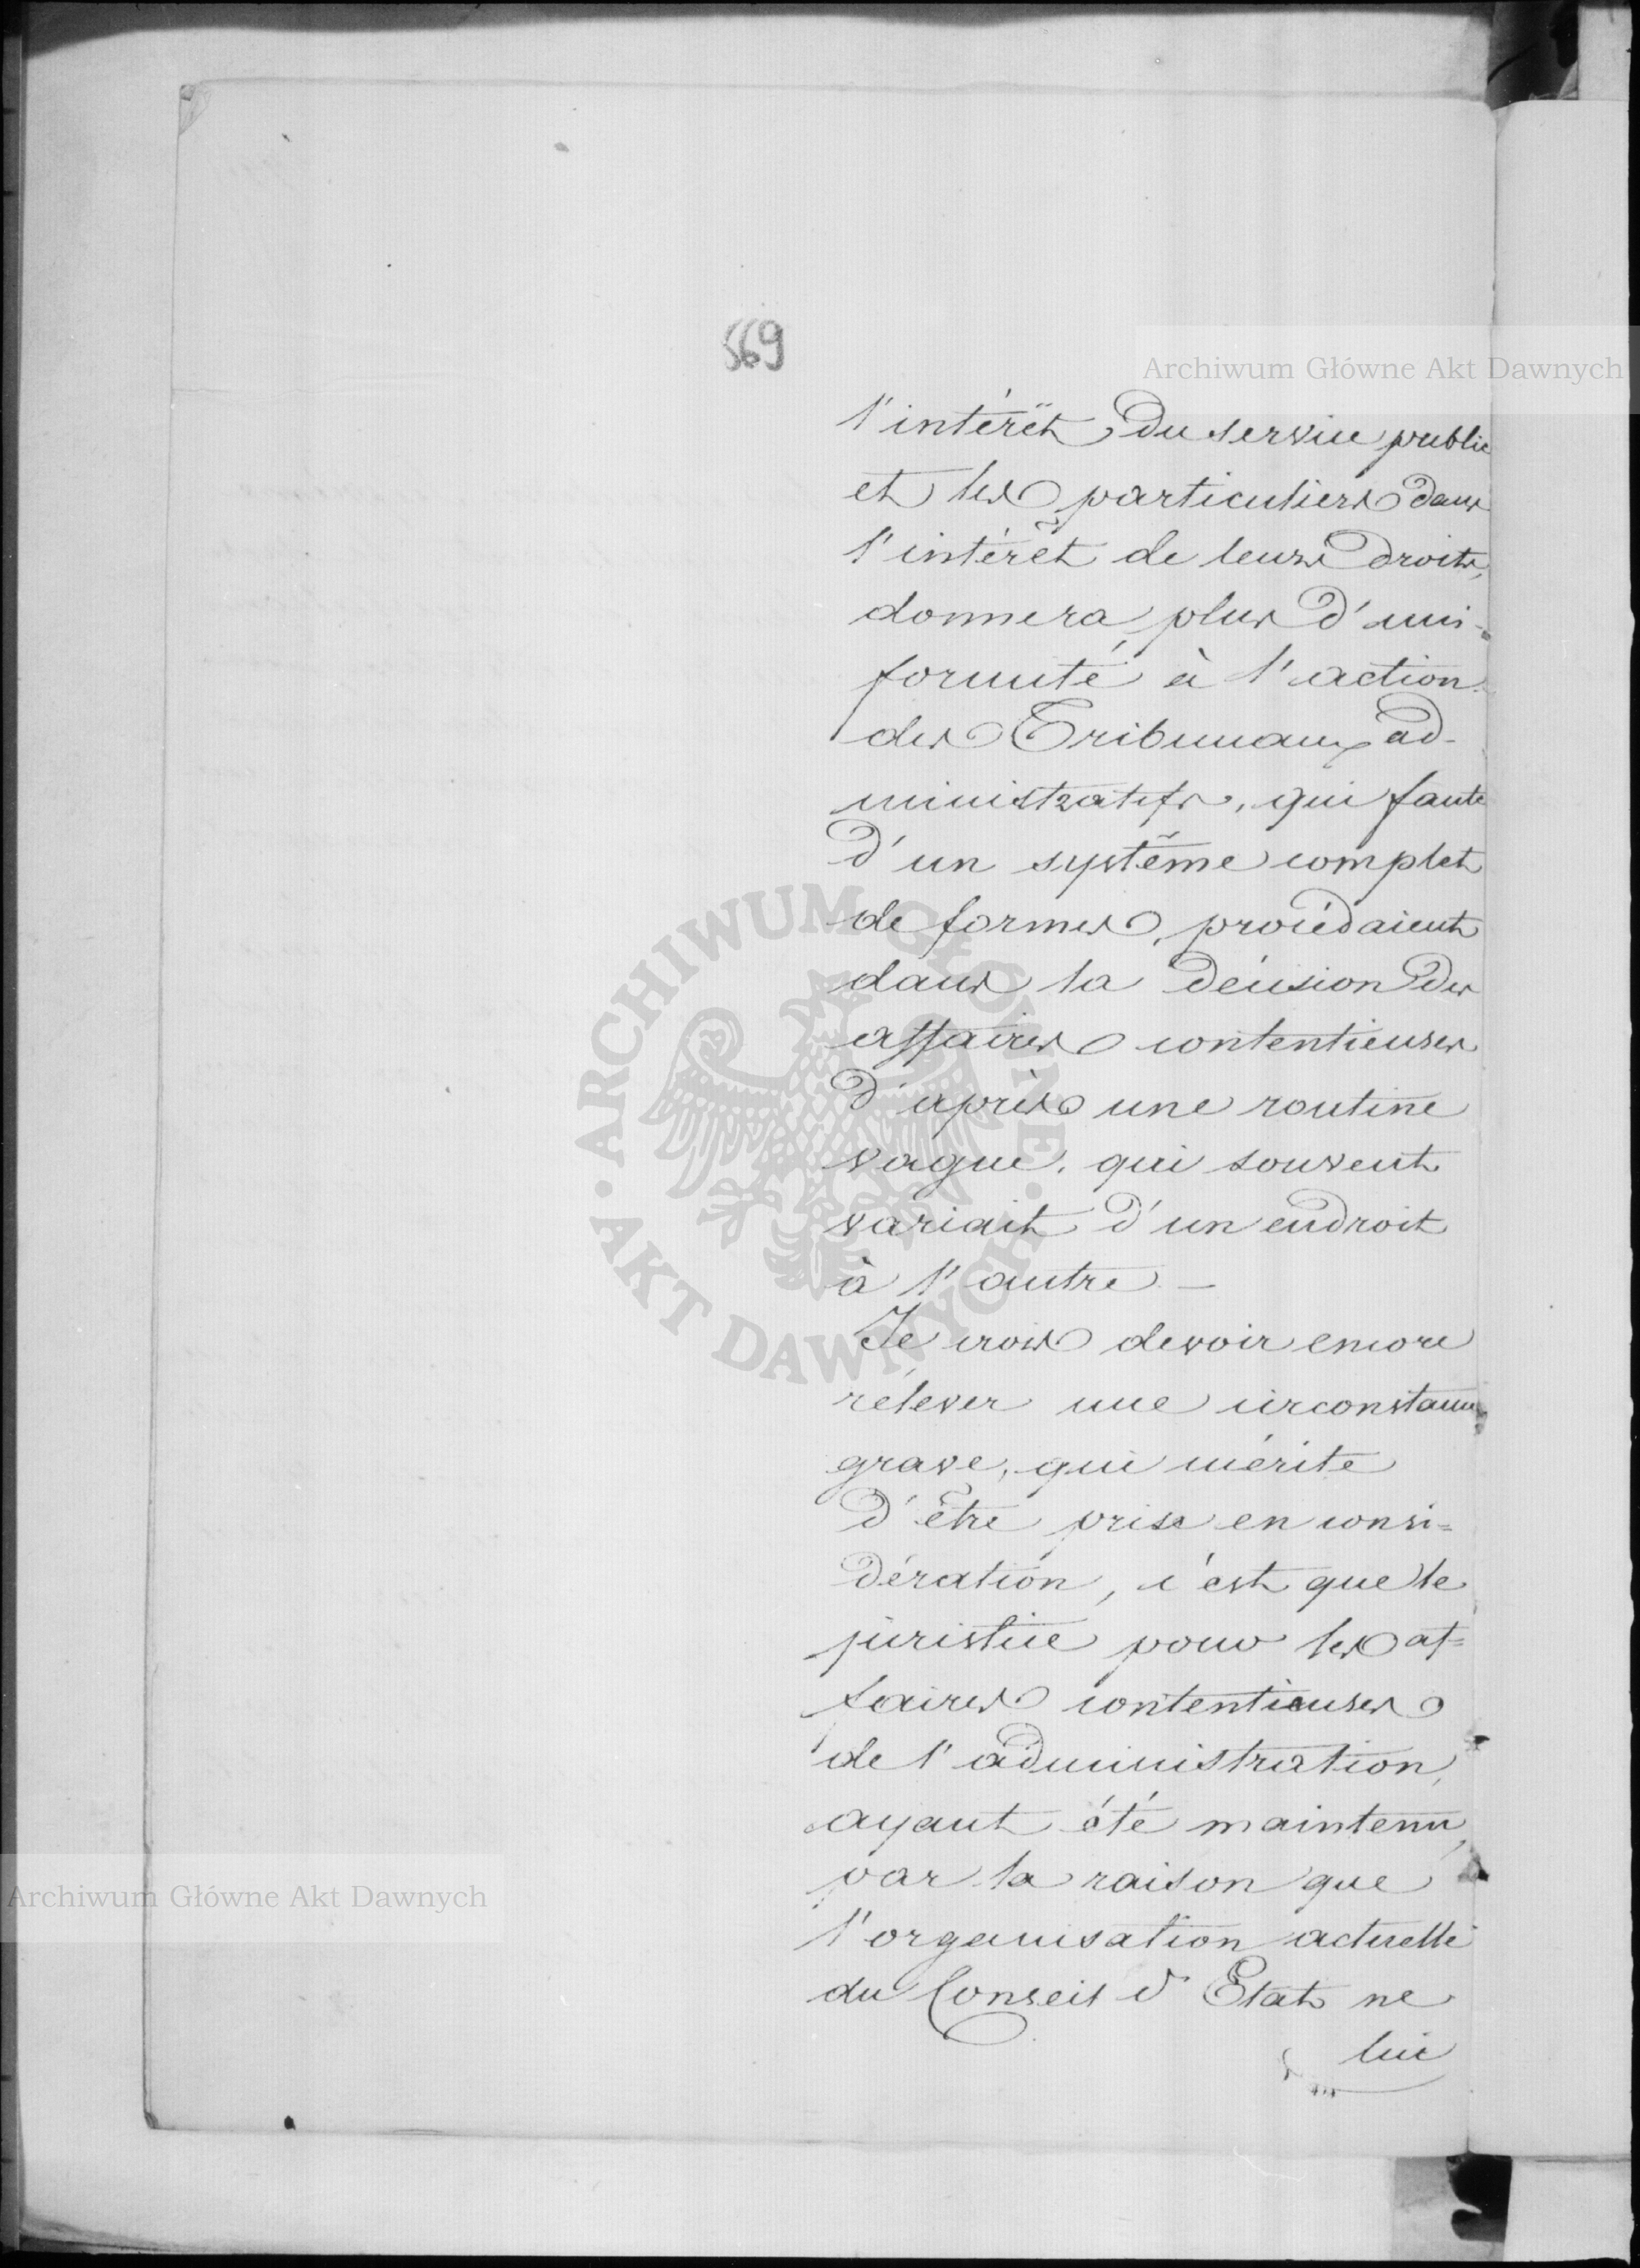 569
Archiwum Główne Akt Dawnych
l'intérêt du service public
et les particuliers dans
l'intérêt de leurs droits,
donnera plus d'uni-
formité à l'action
des Tribunaux ad-
ministratifs, qui faute
d'un systême complet
de formes, procédaient
dans la décision des
affaires contentieuses
d'après une routine
vague, qui souvent
variait d'un endroit
à l'autre. —
Je crois devoir encore
rélever une circonstance
grave, qui mérite
d'être prise en consi=
dération, c'est que le
juristice pour les af=
faires contentieuses
de l'administration,
ayant été maintenu,
par la raison que
l'organisation actuelle
du Conseil d'Etat ne
lui
Archiwum Główne Akt Dawnych
ARCHIWUM GŁÓWNE · AKT DAWNYCH ·